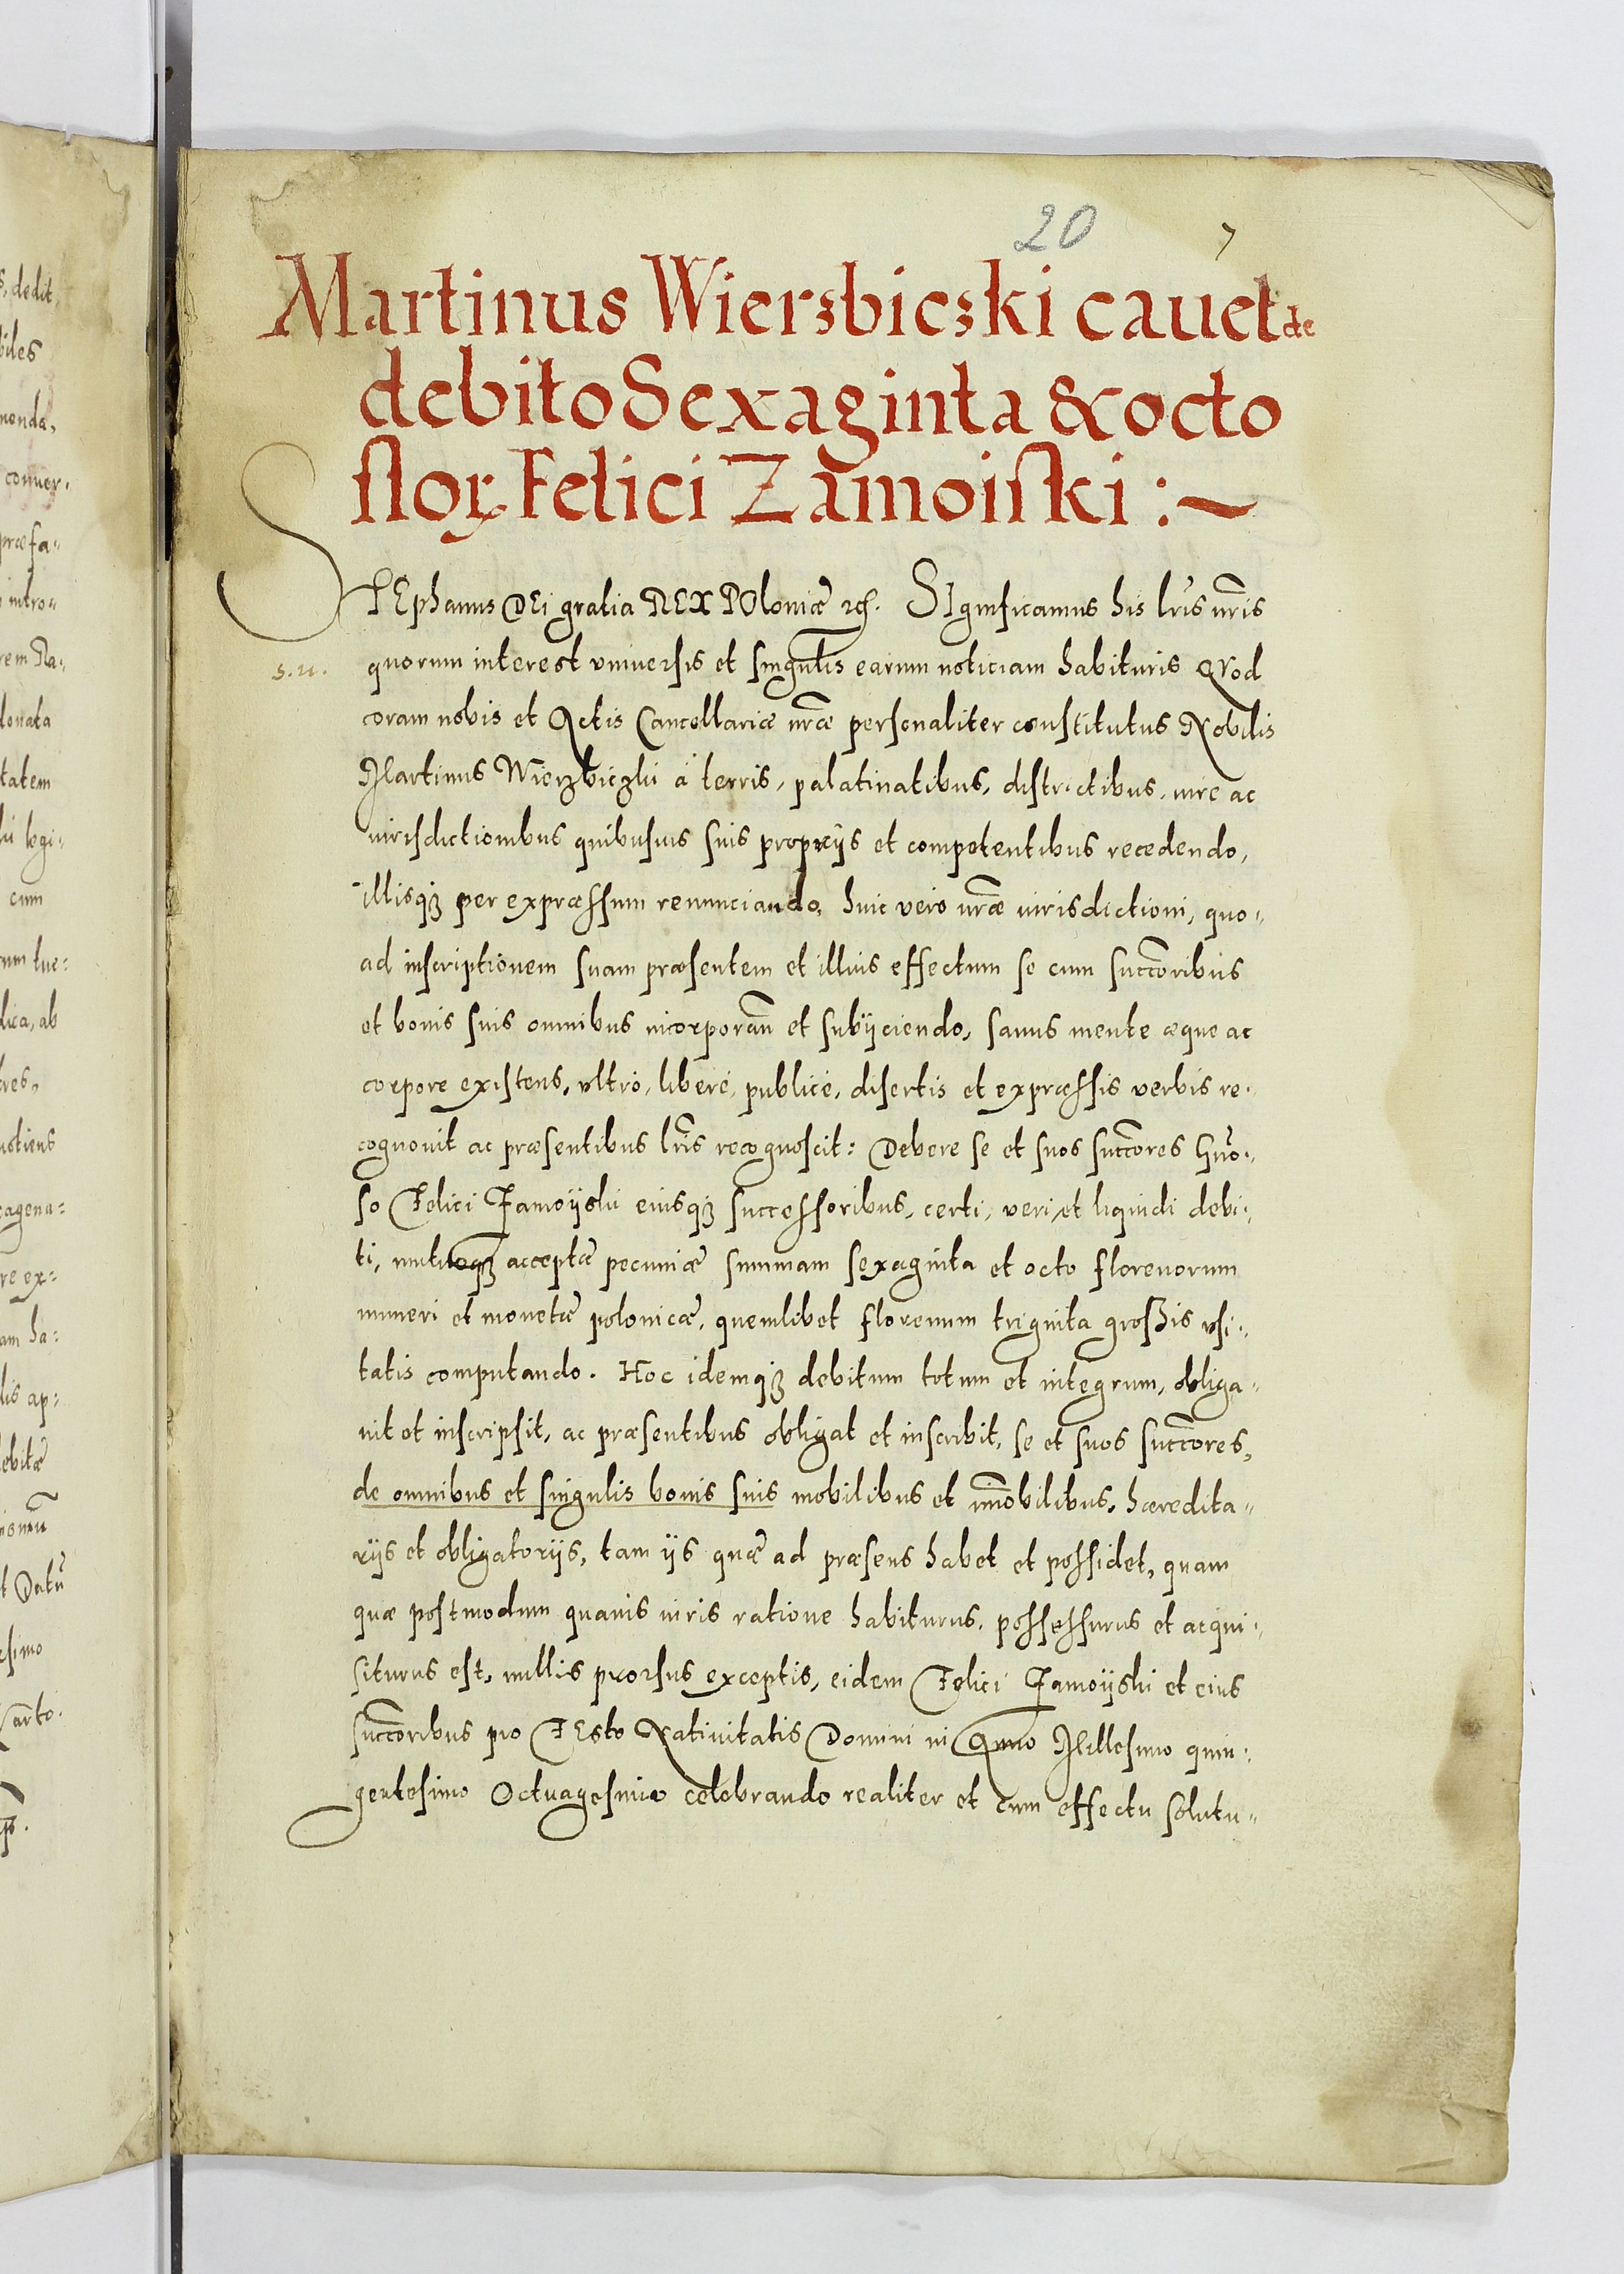 20
7
Martinus Wierzbiczki cauet de
debito Sexaginta & octo
floꝝ Felici Zamoiski :~
STEphanus DEi gratia REX POloniæ etc. SIgnificamus his lr̃is nr̃is
s. u. quorum interest vniuersis et singulis earum noticiam habituris QVod
coram nobis et Actis Cancellariæ nr̃æ personaliter constitutus Nobilis
Martinus Wierzbiczki á terris, palatinatibus, districtibus, iure ac
iurisdictionibus quibusuis suis proprijs et competentibus recedendo,
illisqꝫ per expræssum renunciando, huic vero nr̃æ iurisdictioni, quo-
ad inscriptionem suam præsentem et illius effectum se cum succõribus
et bonis suis omnibus incorporan̄ et subijciendo, sanus mente æque ac
corpore existens, vltrò, liberè, publicè, disertis et expræssis verbis re-
cognouit ac præsentibus lr̃is recognoscit: Debere se et suos succõres Gñro-
so Felici Zamoijski eiusqꝫ successoribus, certi, veri, et liquidi debi-
ti, mutuoqꝫ acceptæ pecuniæ summam sexaginta et octo florenorum
numeri et monetæ polonicæ, quemlibet florenum triginta grossis vsi-
tatis computando. Hoc idemqꝫ debitum totum et integrum, obliga-
uit et inscripsit, ac præsentibus obligat et inscribit, se et suos succõres,
de omnibus et singulis bonis suis mobilibus et im̃obilibus, hæredita-
rijs et obligatorijs, tam ijs quæ ad præsens habet et possidet, quam
quæ postmodum quauis iuris ratione habiturus, possessurus et acqui-
siturus est, nullis prorsus exceptis, eidem Felici Zamoijski et eius
succõribus pro FEsto Natiuitatis Domini in Anno Millesimo quin-
gentesimo Octuagesimo celebrando realiter et cum effectu solutu-